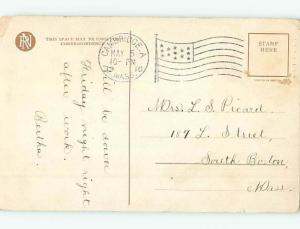 THIS SPACE MAY BE
CAMBRIDGE A
MAY 5
10-PM
10
MASS.
STAMP
HERE
Will be down
Friday night right
after work.
Bertha.
Miss L. S. Picard
187 L. Street,
South Boston,
Mass.